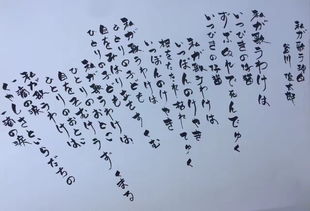 私が歌う理由
谷川 俊太郎
私が歌うわけは
いっぴきの仔猫
ずぶぬれでしんでゆく
いっぴきの仔猫
私が歌うわけは
いっぽんのけやき
根をたたれ枯れてゆく
いっぽんのけやき
私が歌うわけは
ひとりの子ども
ひとりの子ども
私が歌うわけは
ひとりのおとこ
目をそむけうずくまる
ひとりのおとこ
私が歌うわけは
一滴の涙
くやしさといらだちの
一滴の涙